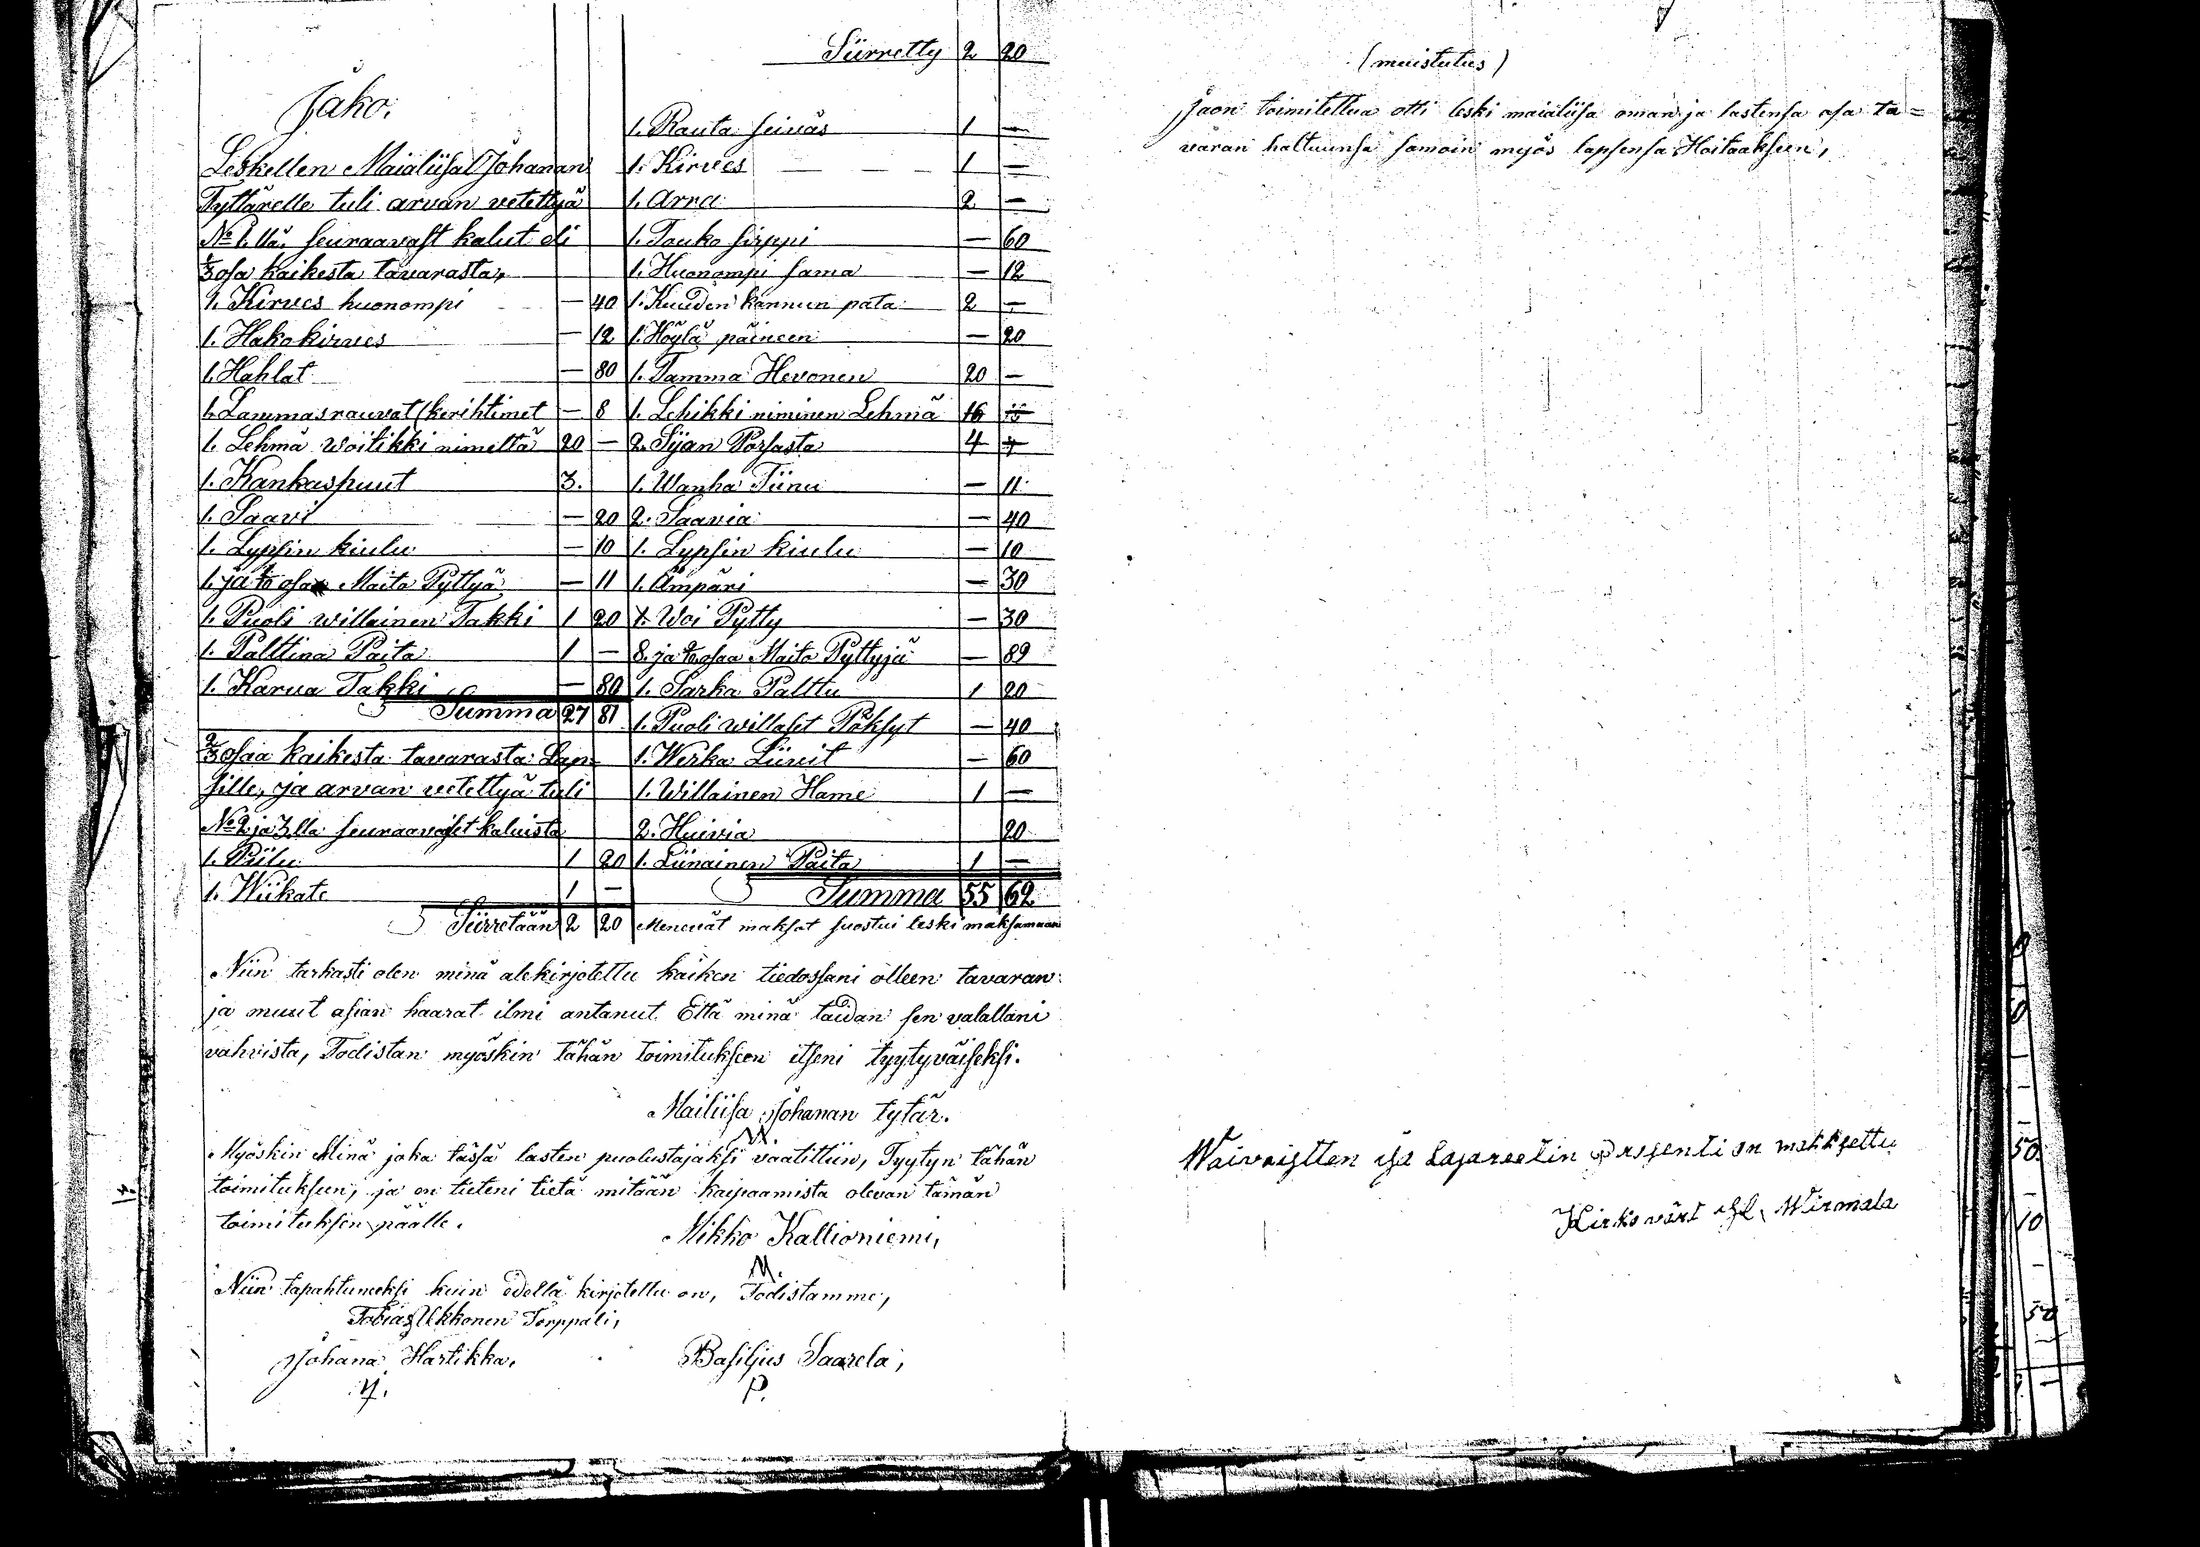 Jako.
Leskellen Maialiisal Johanan
Tyttärelle tuli arvan vetettyä
No 1.llä, seuraavast kalut eli
1/3 osa kaikesta tavarasta,
1. Kirves huonompi — 40
1. Hakokirves — 12
1. Hahlat — 80
1. Lammasrauvat (kerihtimet — 8
1. Lehmä Woitikki nimeltä 20 —
1. Kankaspuut 3.
1. Saavi — 20
1. Lypsin kiulu — 10
1. ja osaa Maito Pyttyä — 11
1. Puoli willainen Takki 1 20
1. Palttina Paita 1 —
1. Karva Takki — 80
Summa 27 81
2/3 osaa kaikesta tavarasta Lap-
sille, ja arvan vetettyä tuli
No 2 ja 3.lla seuraavaset kaluista
1. Piilu 1 20
1. Wiikate 1 —
Siirretään 2 20
Siirretty 2 20
1. Rauta seiväs 1 —
1. Kirves 1 —
1. Arra 2 —
1. Touko sirppi — 60
1. Huonompi sama — 12
1. Kuuden kannun pata 2 —
1. Höylä päineen — 20
1. Tamma Hevonen 20 —
1. Lehikki niminen Lehmä 16
2. Sijan Porsasta 4
1. Wanha Tiinu — 11
2. Saavia — 40
1. Lypsin kiulu — 10
1. Ämpäri — 30
1. Woi Pytty — 30
8. ja osaa Maito Pyttyjä — 89
1. Sarka Palttu 1 20
1. Puoli willaset Pöksyt — 40
1. Werka Liivit — 60
1. Willainen Hame 1 —
2. Huivia 20
1. Liinainen Paita 1 —
Summa 55 62
Menevät maksat suostui leski maksamaan
Niin tarkasti olen minä alekirjotettu kaiken tiedossani olleen tavaran
ja muut asian haarat ilmi antanut. Että minä taidan sen valallani
vahvista, Todistan myöskin tähän toimitukseen itseni tyytyväiseksi.
Mailiisa Johanan tytär.
Myöskin Minä joka tässä lasten puolustajaksi vaatittiin, Tyytyn tähän
toimitukseen, ja en tieteni tietä mitään kaipaamista olevan tämän
toimituksen päälle.
Mikko Kallioniemi,
M.
Niin tapahtuneeksi kuin edellä kirjotettu on, Todistamme,
Tobias Ukkonen Torppali,
Johana Hartikka,
Basiljus Saarela,
P.
(muistutus)
Jaon toimitettua otti leski maialiisa oman ja lastensa osa ta=
varan haltuunsa samoin myös lapsensa Hoitaakseen,
Waivaistten ja Lasareetin prosenti on makksettu
Kirkovärt Wirmala
50.
10
50